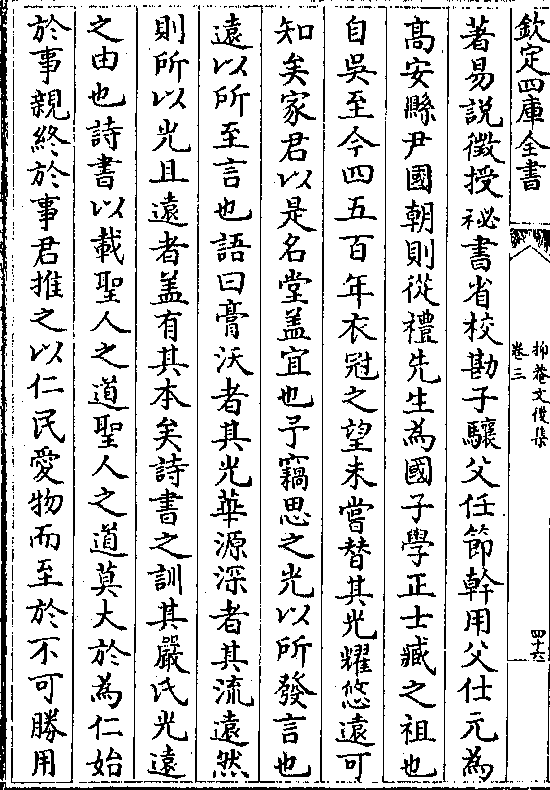 欽定四庫全書
抑菴文後集
卷三
四十六
著易說徵授祕書省校勘子驤父任節幹用父仕元為
髙安縣尹國朝則從禮先生為國子學正士臧之祖也
自吳至今四五百年衣冠之望未嘗替其光耀悠遠可
知矣家君以是名堂盖宜也予竊思之光以所發言也
遠以所至言也語曰膏沃者其光華源深者其流遠然
則所以光且遠者盖有其本矣詩書之訓其嚴氏光遠
之由也詩書以載聖人之道聖人之道莫大於為仁始
於事親終於事君推之以仁民愛物而至於不可勝用